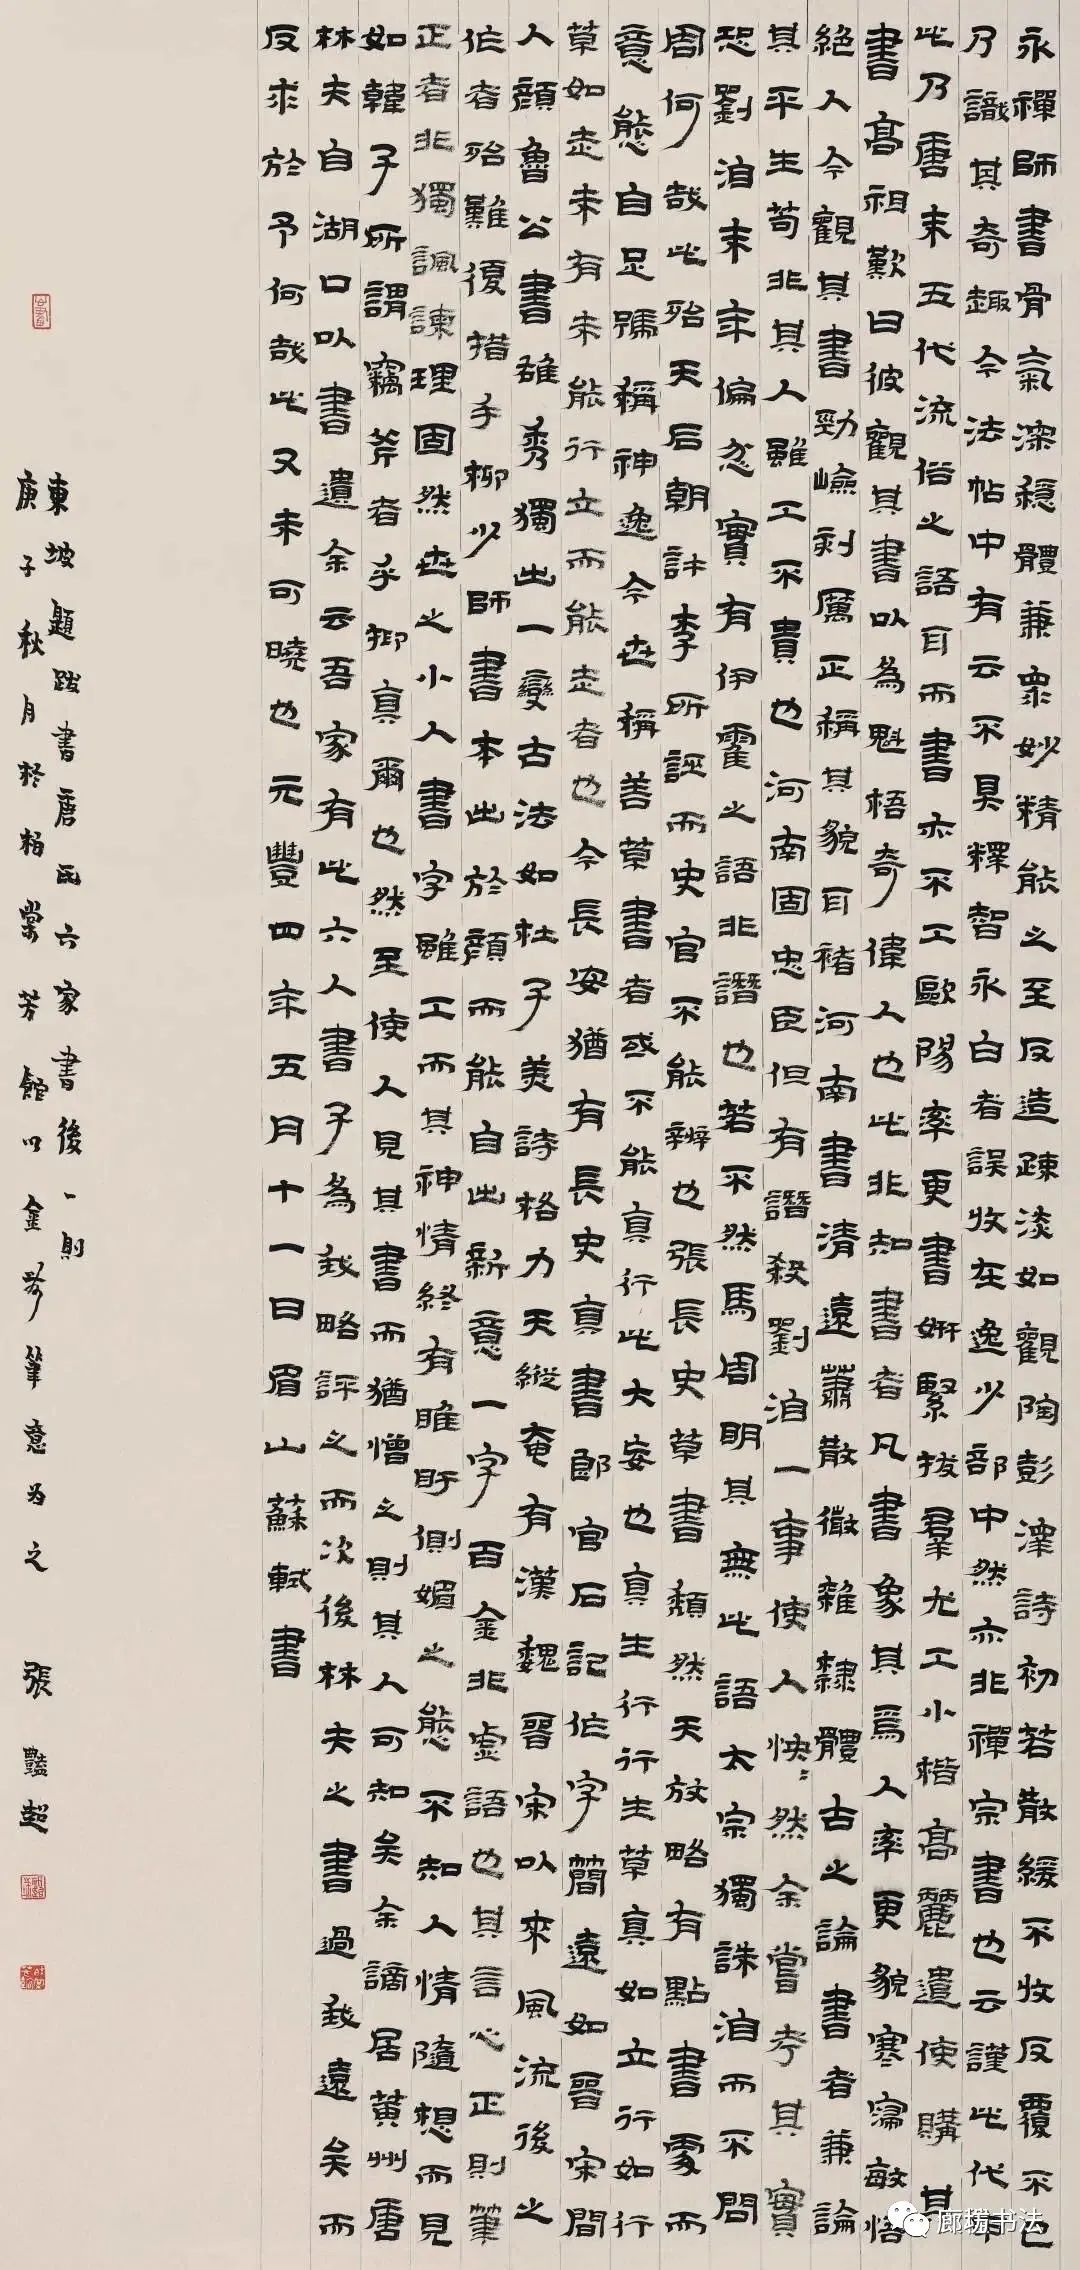 永禪師書骨氣深穩體兼眾妙精能之至反造疎淡如觀陶彭澤詩初若散緩不收反覆不已
乃識其奇趣今法帖中有云不具釋智永白者誤收在逸少部中然亦非禪宗書也云謹此代申
此乃唐末五代流俗之語耳而書亦不工歐陽率更書妍緊拔群尤工小楷高麗遣使購其
書高祖歎曰彼觀其書以為魁梧奇偉人也此非知書者凡書象其為人率更貌寒寢敏悟
絕人今觀其書勁嶮刻厲正稱其貌耳褚河南書清遠蕭散微雜隸體古之論書者兼論
其平生苟非其人雖工不貴也河南固忠臣但有譖殺劉洎一事使人怏怏然余嘗考其實
恐劉洎末年偏忿實有伊霍之語非譖也若不然馬周明其無此語太宗獨誅洎而不問
周何哉此殆天后朝許李所誣而史官不能辨也張長史草書頹然天放略有點畫處而
意態自足號稱神逸今世稱善草書者或不能真行此大妄也真生行行生草真如立行如行
草如走未有未能行立而能走者也今長安猶有長史真書郎官石記作字簡遠如晉宋間
人顏魯公書雄秀獨出一變古法如杜子美詩格力天縱奄有漢魏晉宋以來風流後之
作者殆難復措手柳少師書本出於顏而能自出新意一字百金非虛語也其言心正則筆
正者非獨諷諫理固然世之小人書字雖工而其神情終有睢盱側媚之態不知人情隨想而見
如韓子所謂竊斧者乎抑真爾也然至使人見其書而猶憎之則其人可知矣余謫居黃州唐
林夫自湖口以書遺余云吾家有此六人書子為我略評之而次後林夫之書過我遠矣而
反求於予何哉此又未可曉也元豐四年五月十一日眉山蘇軾書
東坡題跋書唐氏六家書後一則
庚子秋月於柏棠芳館以金農筆意為之 張豔超
廊坊书法